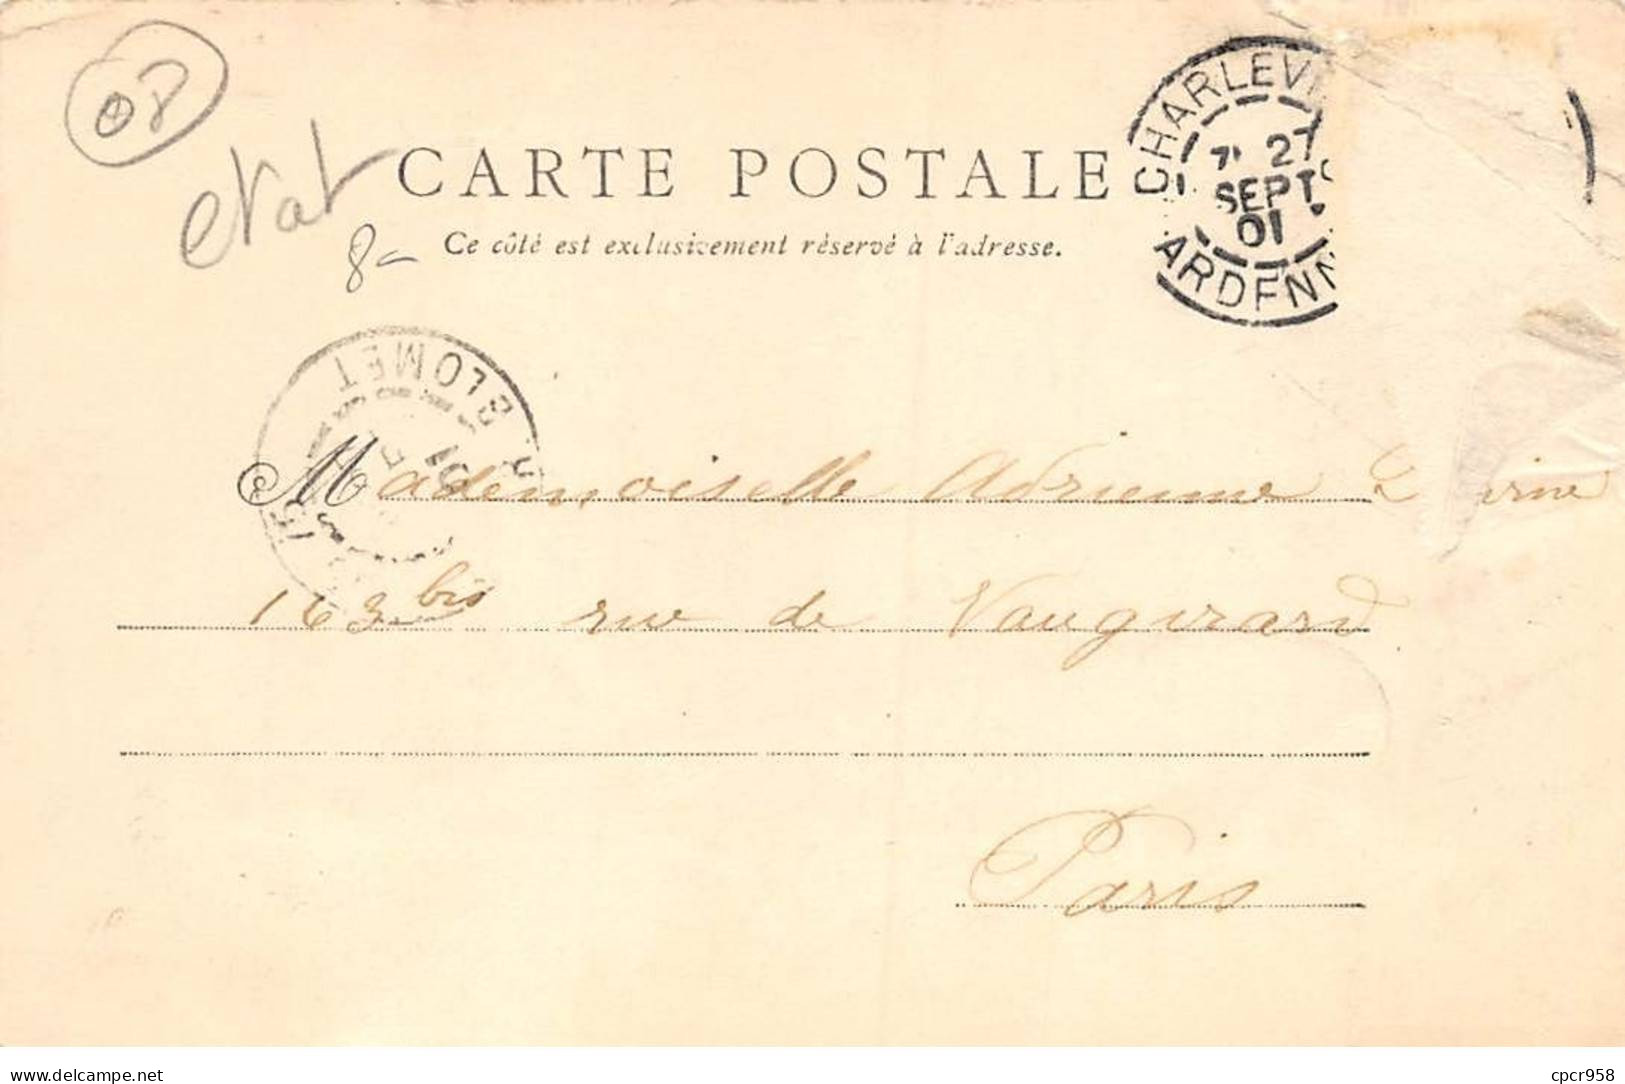 08
etat
CARTE POSTALE
Ce côté est exclusivement réservé à l'adresse.
8-
CHARLEVI
27
SEPT
01
ARDENN
R BLOMET
01
Mademoiselle Adrienne
163 bis rue de Vaugirard
Paris
cpcr958